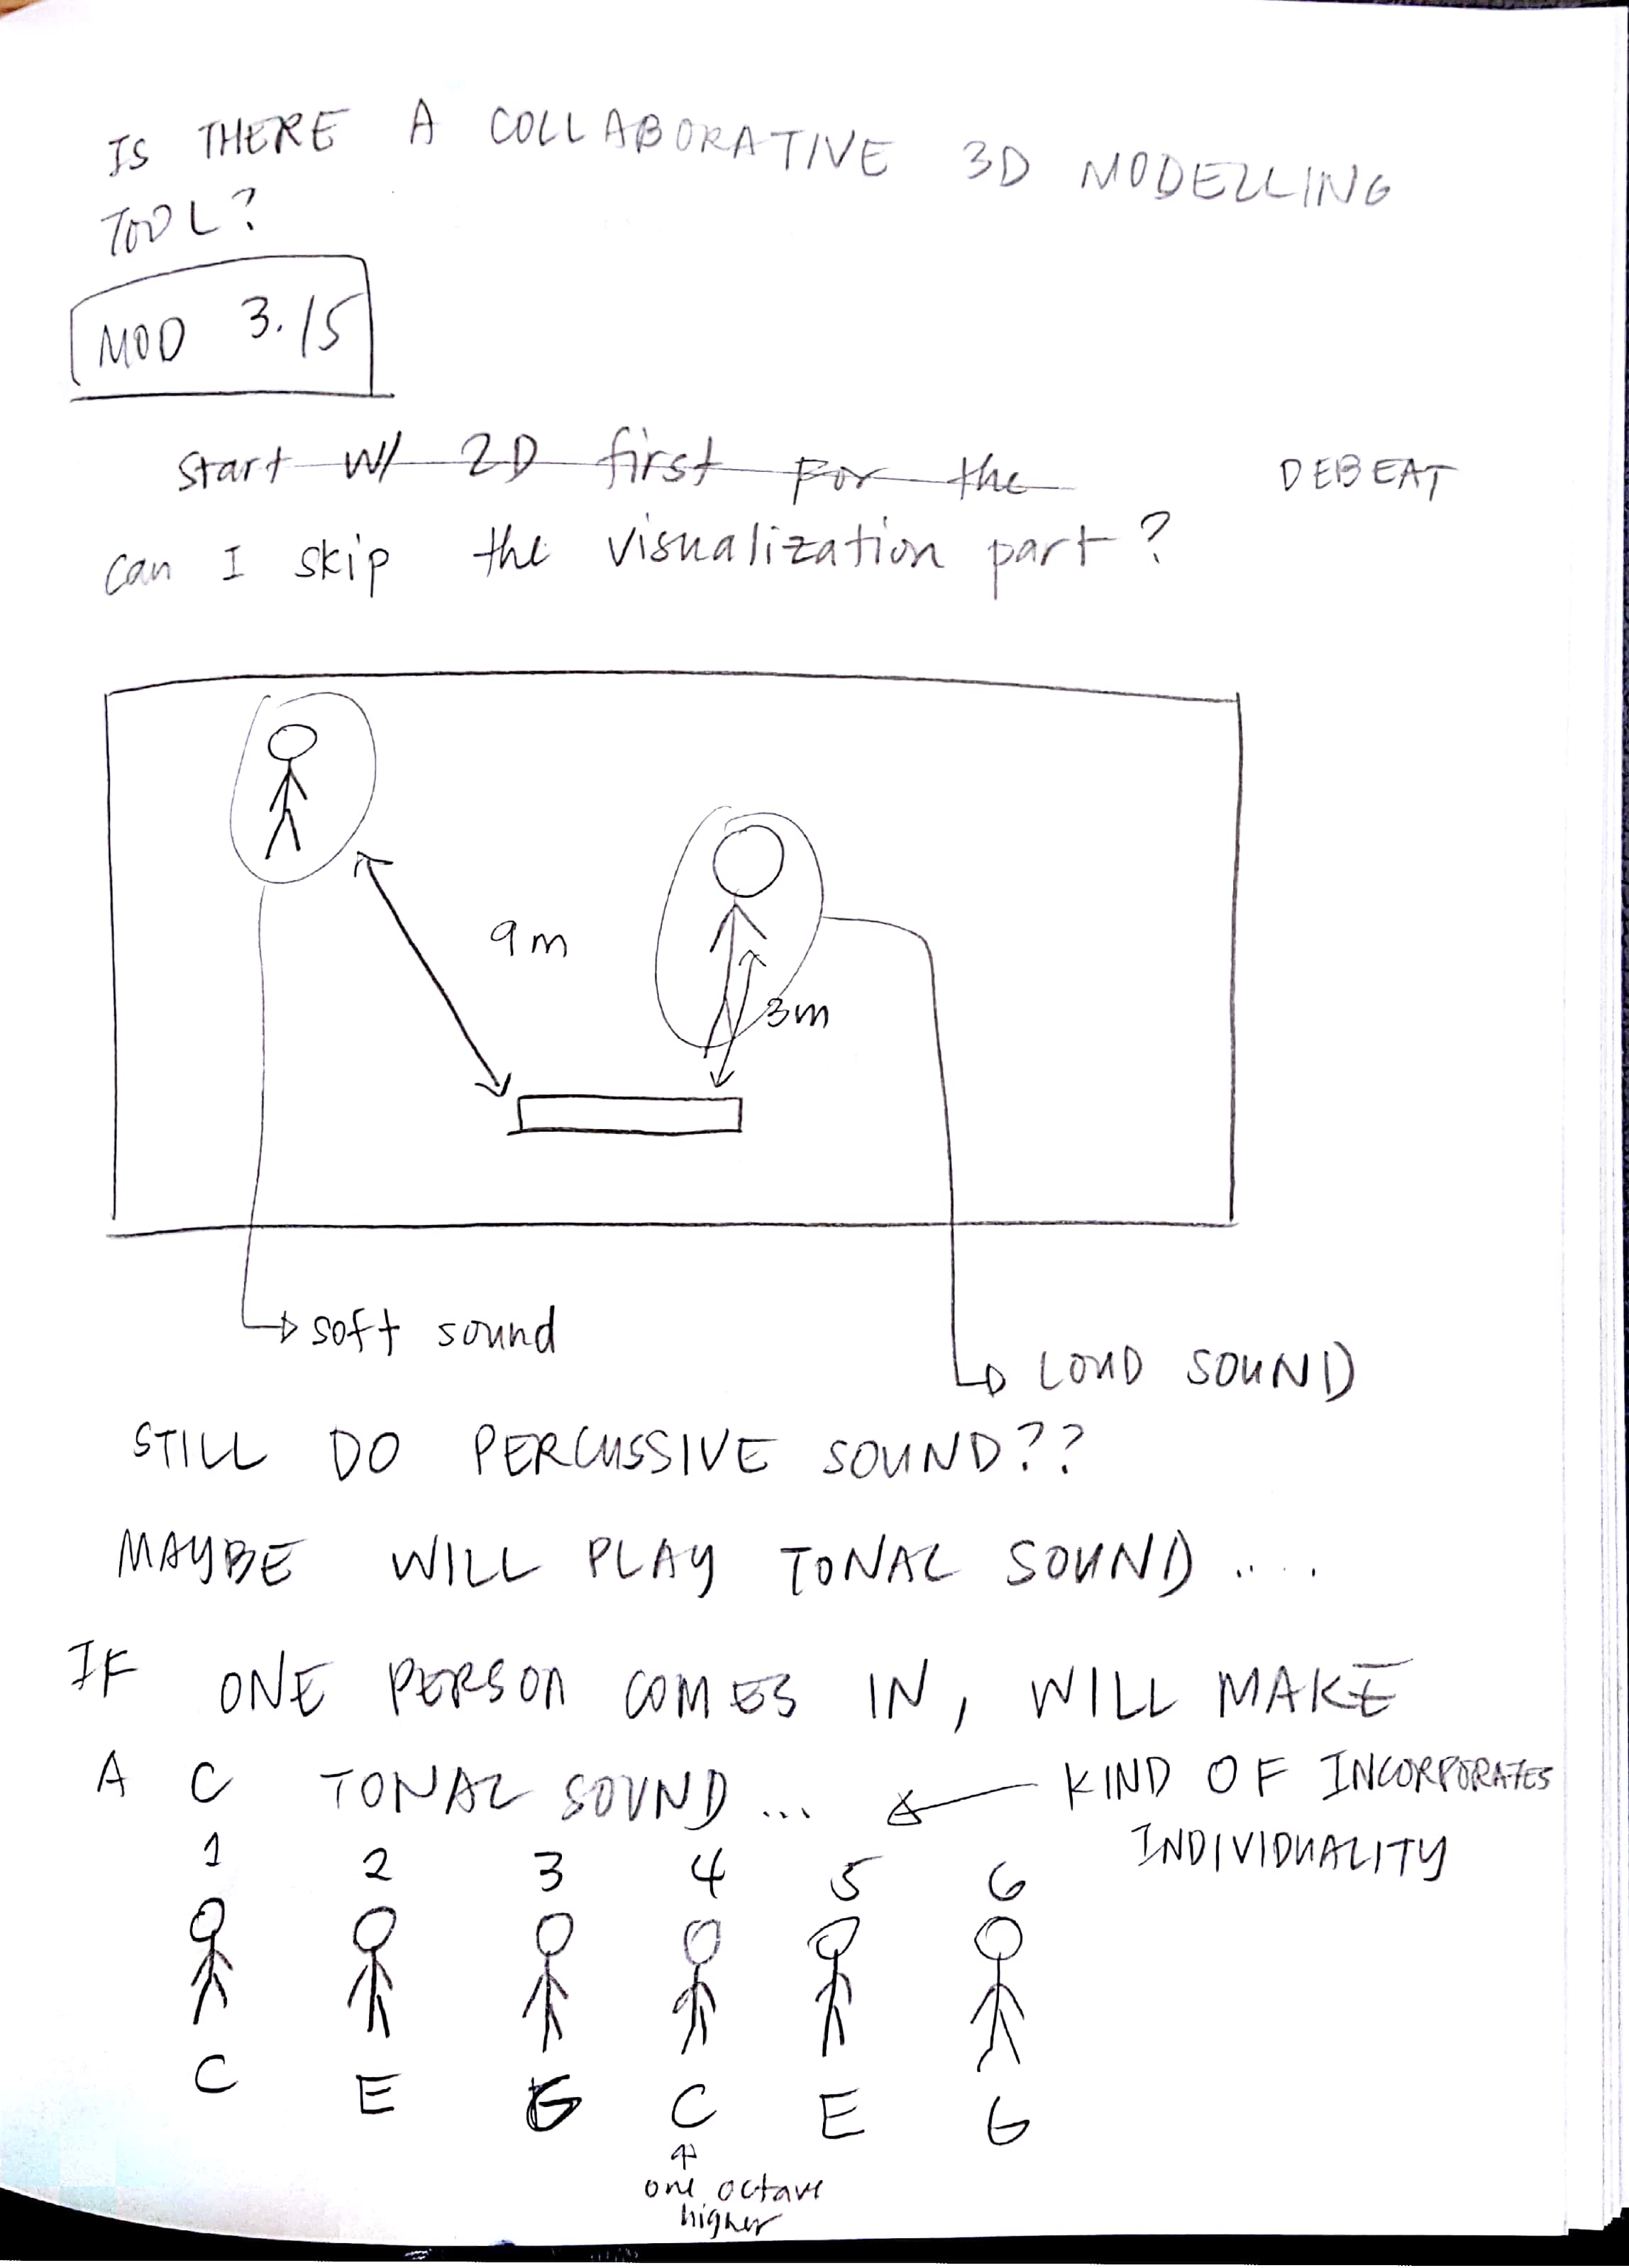 IS THERE A COLLABORATIVE 3D MODELLING
TOOL?
MOD 3.15
Start w/ 2D first for the
DEBEAT
can I skip the visualization part?
9m
3m
soft sound
LOUD SOUND
STILL DO PERCUSSIVE SOUND??
MAYBE WILL PLAY TONAL SOUND ....
IF ONE PERSON COMES IN, WILL MAKE
A C TONAL SOUND...
KIND OF INCORPORATES
INDIVIDUALITY
1 2 3 4 5 6
C E G C E G
one octave
higher